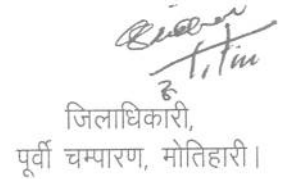 जिलाधिकारी,
पूर्वी चम्पारण, मोतिहारी।